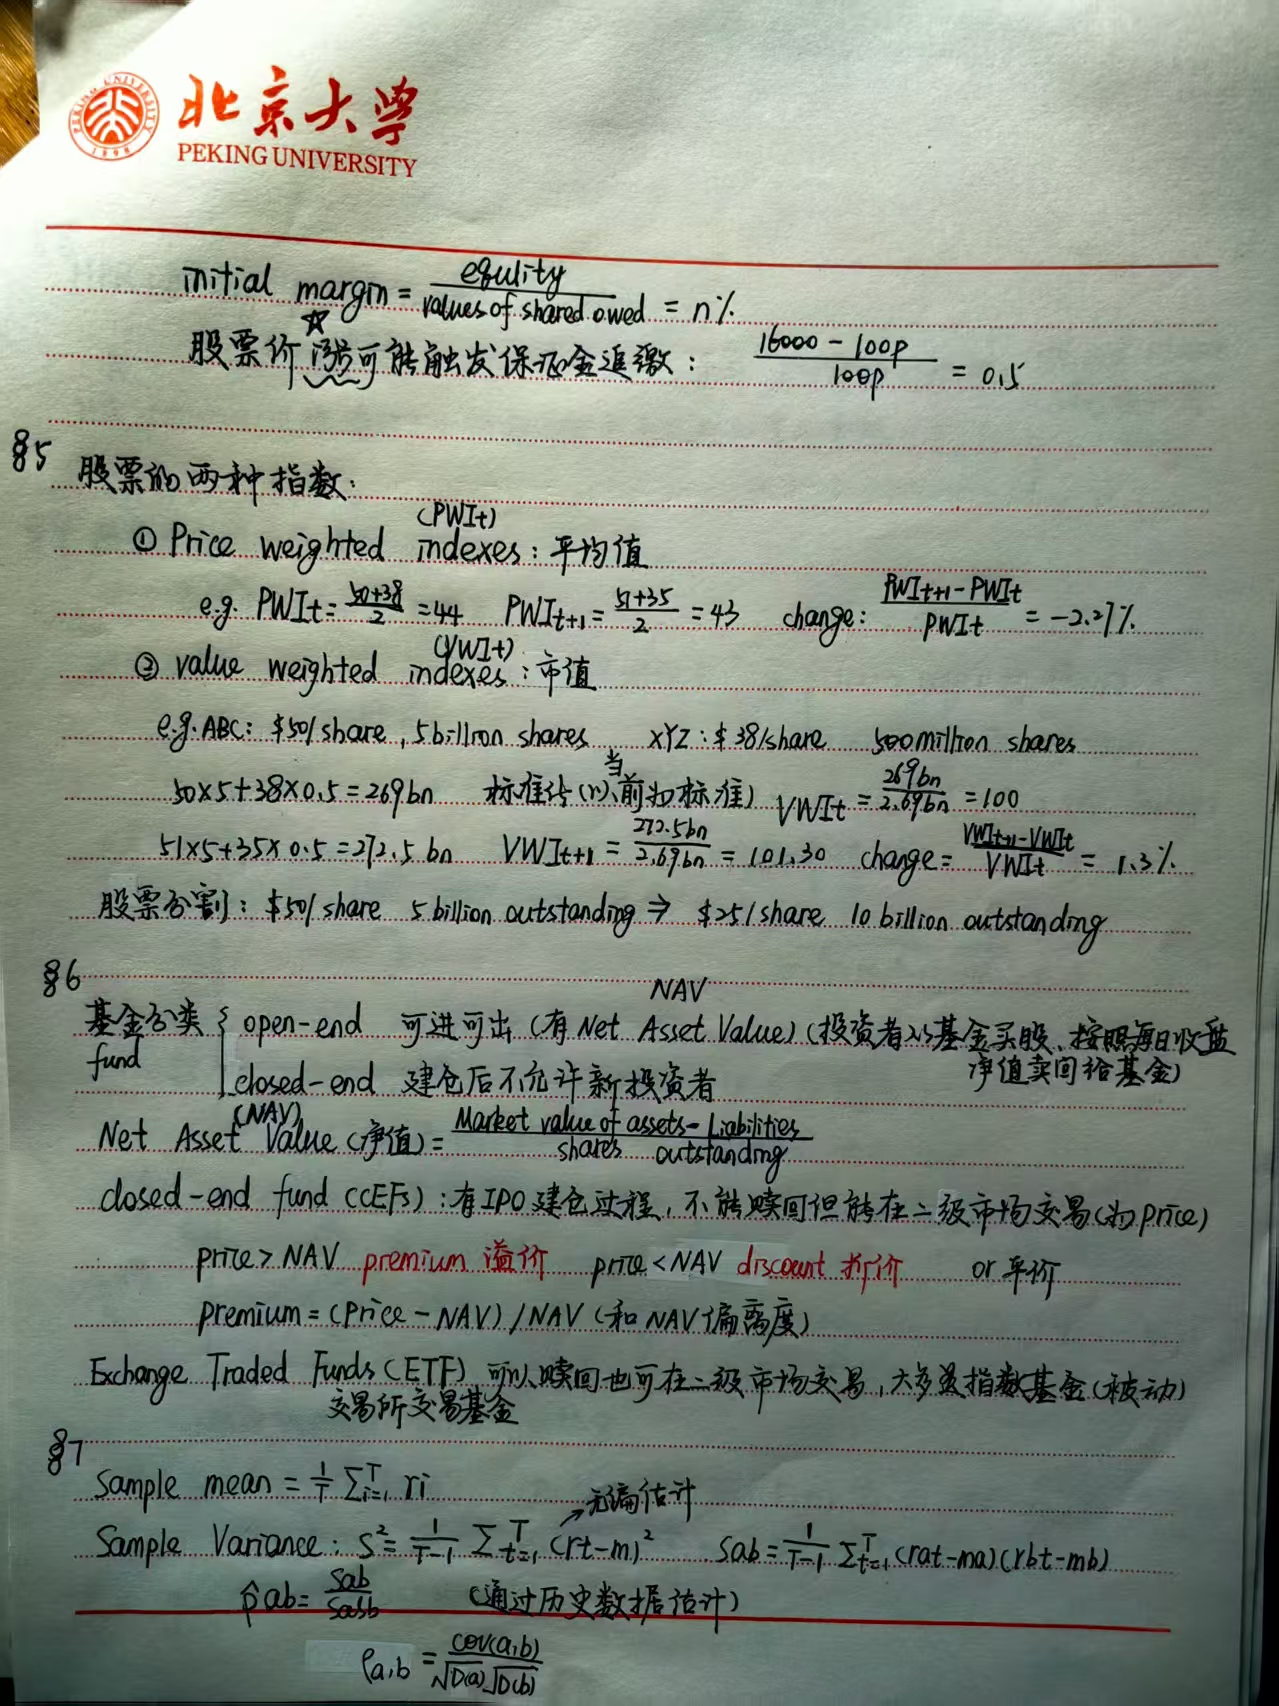 北京大学
PEKING UNIVERSITY
PEKING UNIVERSITY
1898
initial margin = equlity / values of shared owed = n%
股票价涨可能触发保证金追缴: (16000 - 100p) / 100p = 0.5
§5
股票的两种指数:
(PWIt)
① Price weighted indexes: 平均值
e.g. PWIt = (50+38)/2 = 44 PWIt+1 = (51+35)/2 = 43 change: (PWIt+1 - PWIt)/PWIt = -2.27%
(VWIt)
② value weighted indexes: 市值
e.g. ABC: $50/share, 5 billion shares XYZ: $38/share 500 million shares
50×5+38×0.5=269bn 标准化(以当前为标准) VWIt = 269bn/2.69bn = 100
51×5+35×0.5=272.5bn VWIt+1 = 272.5bn/2.69bn = 101.30 change = (VWIt+1-VWIt)/VWIt = 1.3%
股票分割: $50/share 5 billion outstanding ⇒ $25/share 10 billion outstanding
§6
NAV
基金分类 { open-end 可进可出 (有 Net Asset Value) (投资者从基金买股、按照每日收盘
净值卖回给基金)
fund
closed-end 建仓后不允许新投资者
(NAV)
Net Asset Value (净值) = (Market value of assets - Liabilities) / shares outstanding
closed-end fund (CEFs): 有IPO建仓过程, 不能赎回但能在二级市场交易(为price)
price > NAV premium 溢价 price < NAV discount 折价 or 平价
premium = (price - NAV) / NAV (和NAV偏离度)
Exchange Traded Funds (ETF) 可以赎回也可在二级市场交易, 大多是指数基金(被动)
交易所交易基金
§7
Sample mean = 1/T ∑ᵀi=1 ri
→无偏估计
Sample Variance: S² = 1/(T-1) ∑ᵀt=1 (rt-m)² Sab = 1/(T-1) ∑ᵀt=1 (rat-ma)(rbt-mb)
ρ̂ab = Sab/SaSb (通过历史数据估计)
ρa,b = cov(a,b) / √D(a)√D(b)